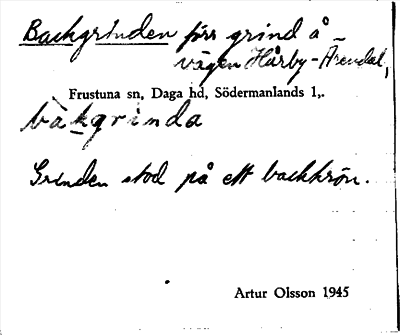 Backgrinden förr grind å
vägen Hårby-Arendal,
Frustuna sn, Daga hd, Södermanlands l,.
bakgrinda
Grinden stod på ett backkrön.
Artur Olsson 1945